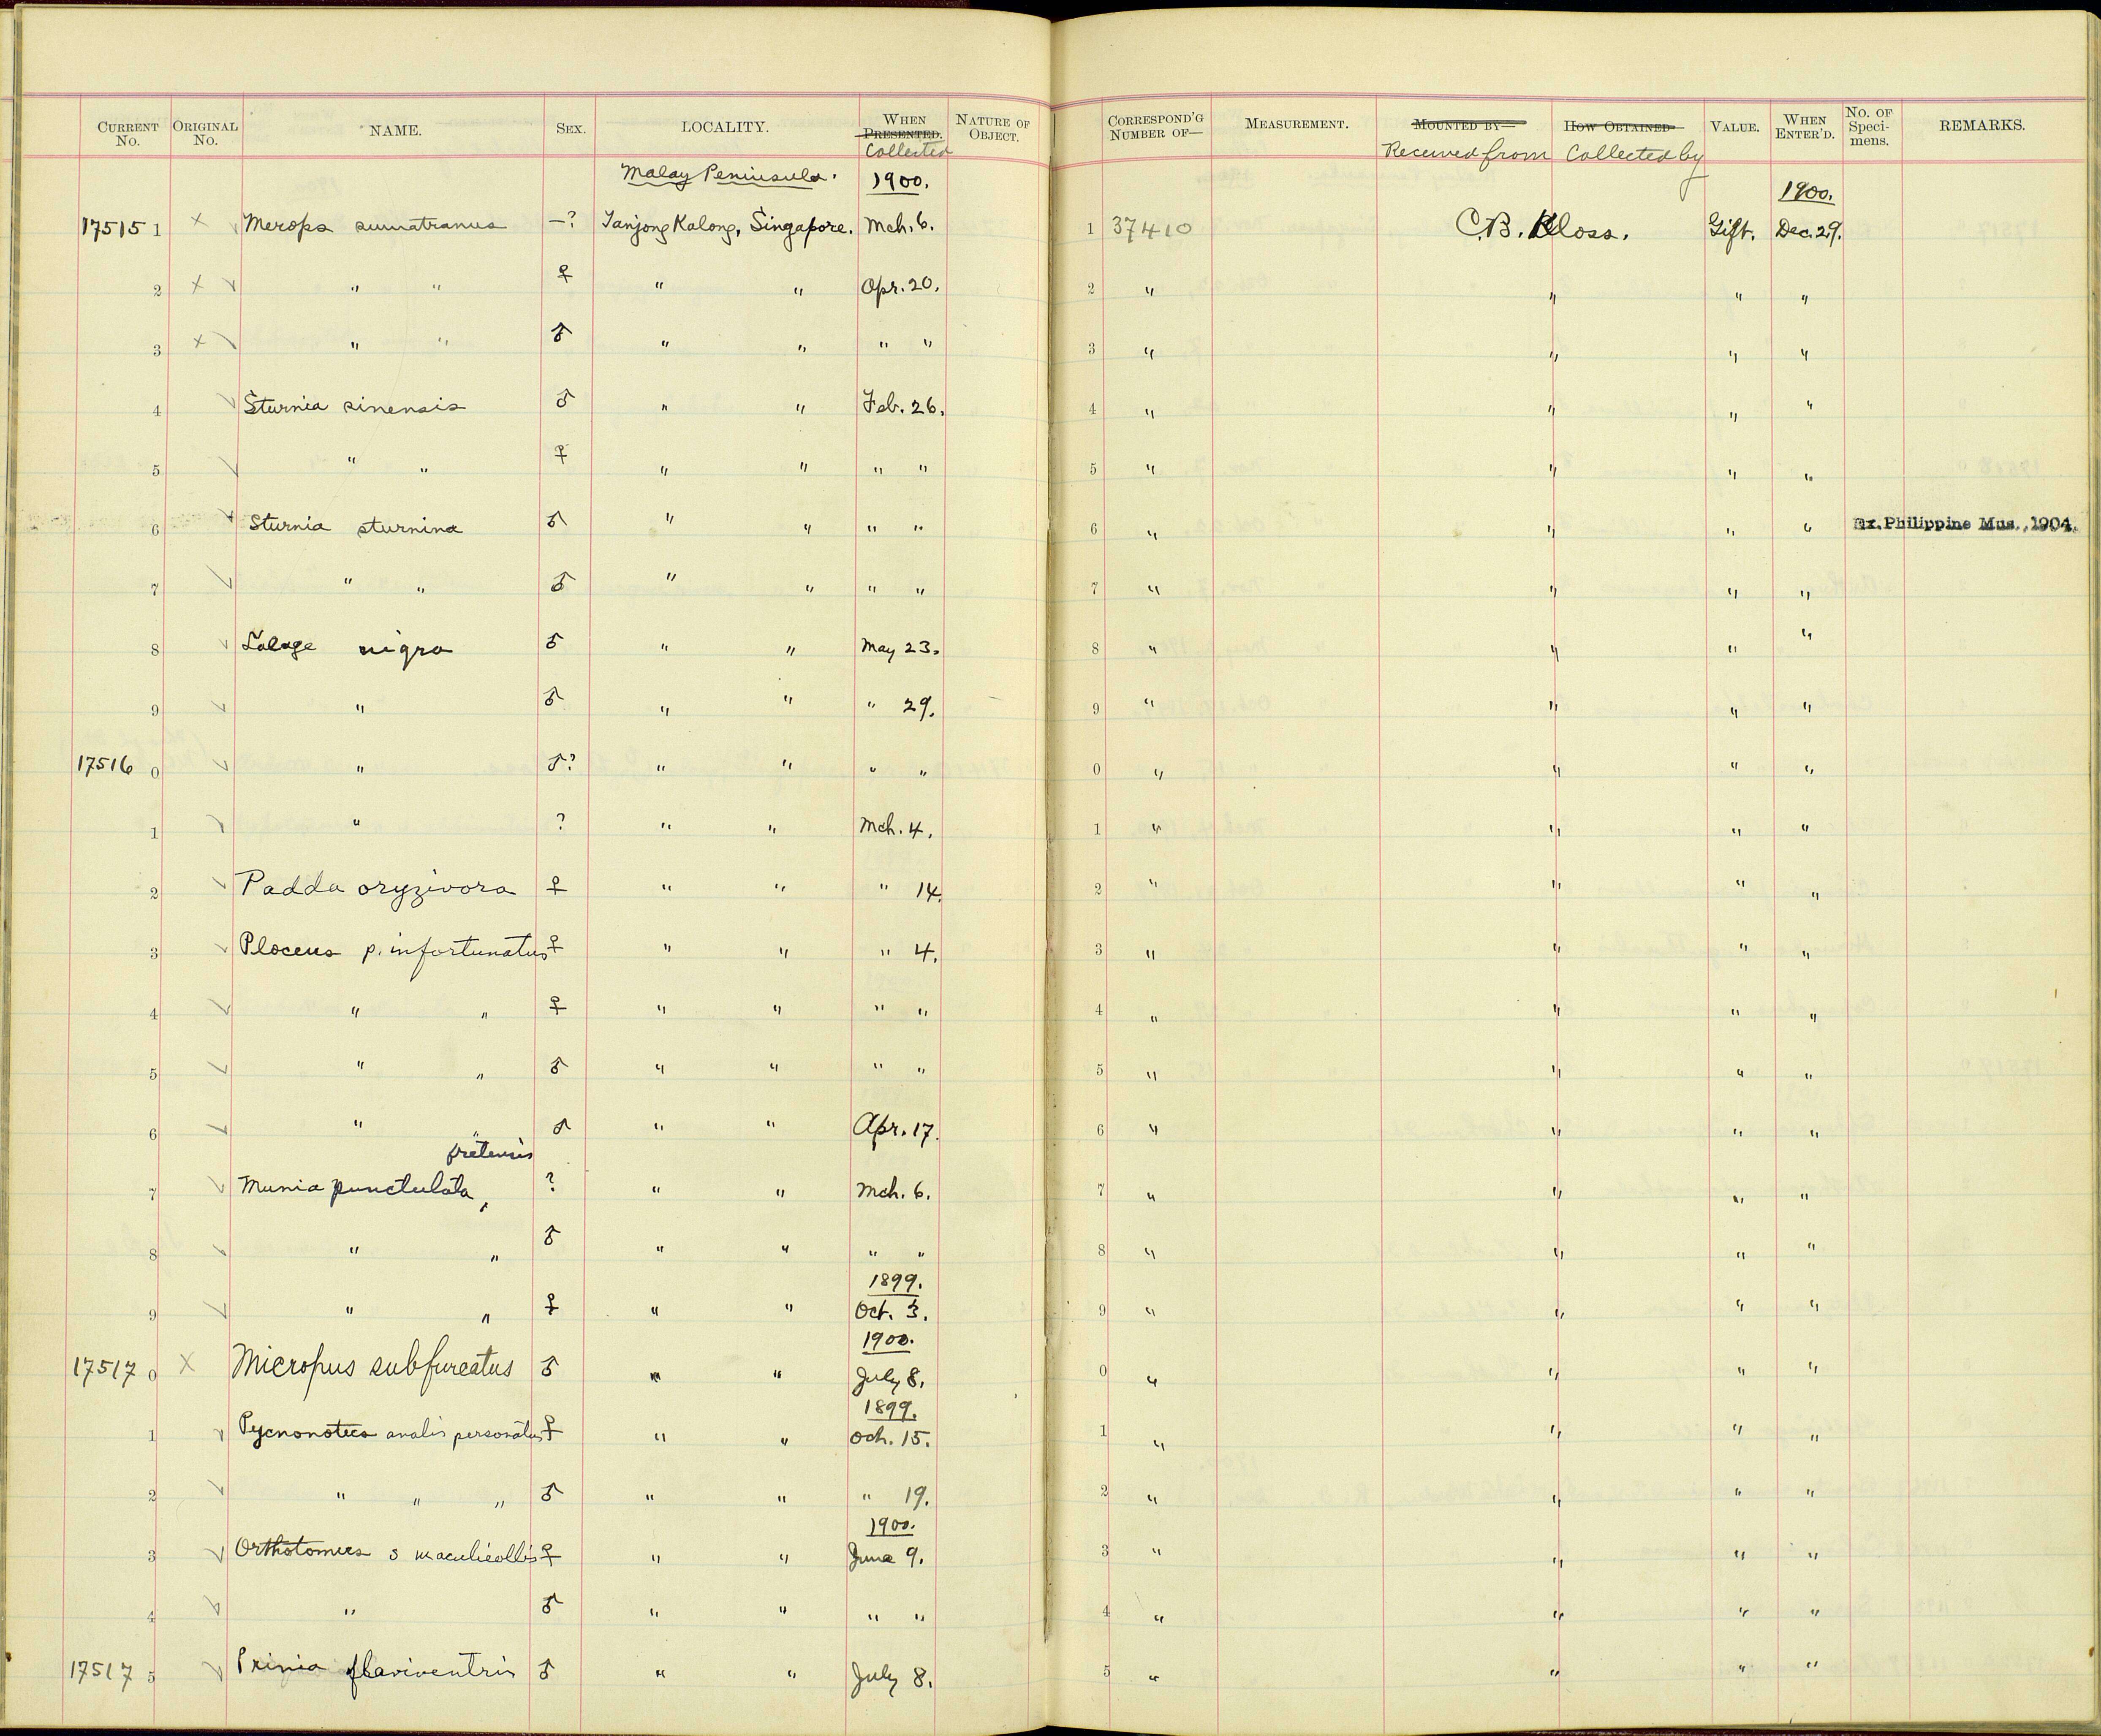 CURRENT No. ORIGINAL No. NAME. SEX. LOCALITY. WHEN PRESENTED. Collected NATURE OF OBJECT. CORRESPOND'G NUMBER OF— MEASUREMENT. MOUNTED BY— Received from HOW OBTAINED Collected by VALUE. WHEN ENTER'D. No. OF Speci-mens. REMARKS.
Malay Peninsula. 1900. 1900.
17515 1 x Merops sumatranus —? Tanjong Kalong, Singapore. Mch. 6. 1 37410 C.B. Kloss. Gift. Dec. 29.
2 x " " ♀ " " Apr. 20. 2 " " " "
3 x " " ♂ " " " " 3 " " " "
4 Sturnia sinensis ♂ " " Feb. 26. 4 " " " "
5 " " ♀ " " " " 5 " " " "
6 Sturnia sturnina ♂ " " " " 6 " " " " Ex. Philippine Mus., 1904.
7 " " ♂ " " " " 7 " " " "
8 Lalage nigra ♂ " " May 23. 8 " " " "
9 " ♂ " " " 29. 9 " " " "
17516 0 " ♂? " " " " 0 " " " "
1 " ? " " Mch. 4. 1 " " " "
2 Padda oryzivora ♀ " " " 14. 2 " " " "
3 Ploceus p. infortunatus ♀ " " " 4. 3 " " " "
4 " " ♀ " " " " 4 " " " "
5 " " ♂ " " " " 5 " " " "
6 " " ♂ " " Apr. 17. 6 " " " "
fretensis
7 Munia punctulata, ? " " Mch. 6. 7 " " " "
8 " " ♂ " " " " 8 " " " "
1899.
9 " " ♀ " " Oct. 3. 9 " " " "
1900.
17517 0 x Micropus subfurcatus ♂ " " July 8. 0 " " " "
1899.
1 Pycnonotus analis personatus ♀ " " Och. 15. 1 " " " "
2 " " " ♂ " " " 19. 2 " " " "
1900.
3 Orthotomus s maculicollis ♀ " " June 9. 3 " " " "
4 " ♂ " " " " 4 " " " "
17517 5 Prinia flaviventris ♂ " " July 8. 5 " " " "